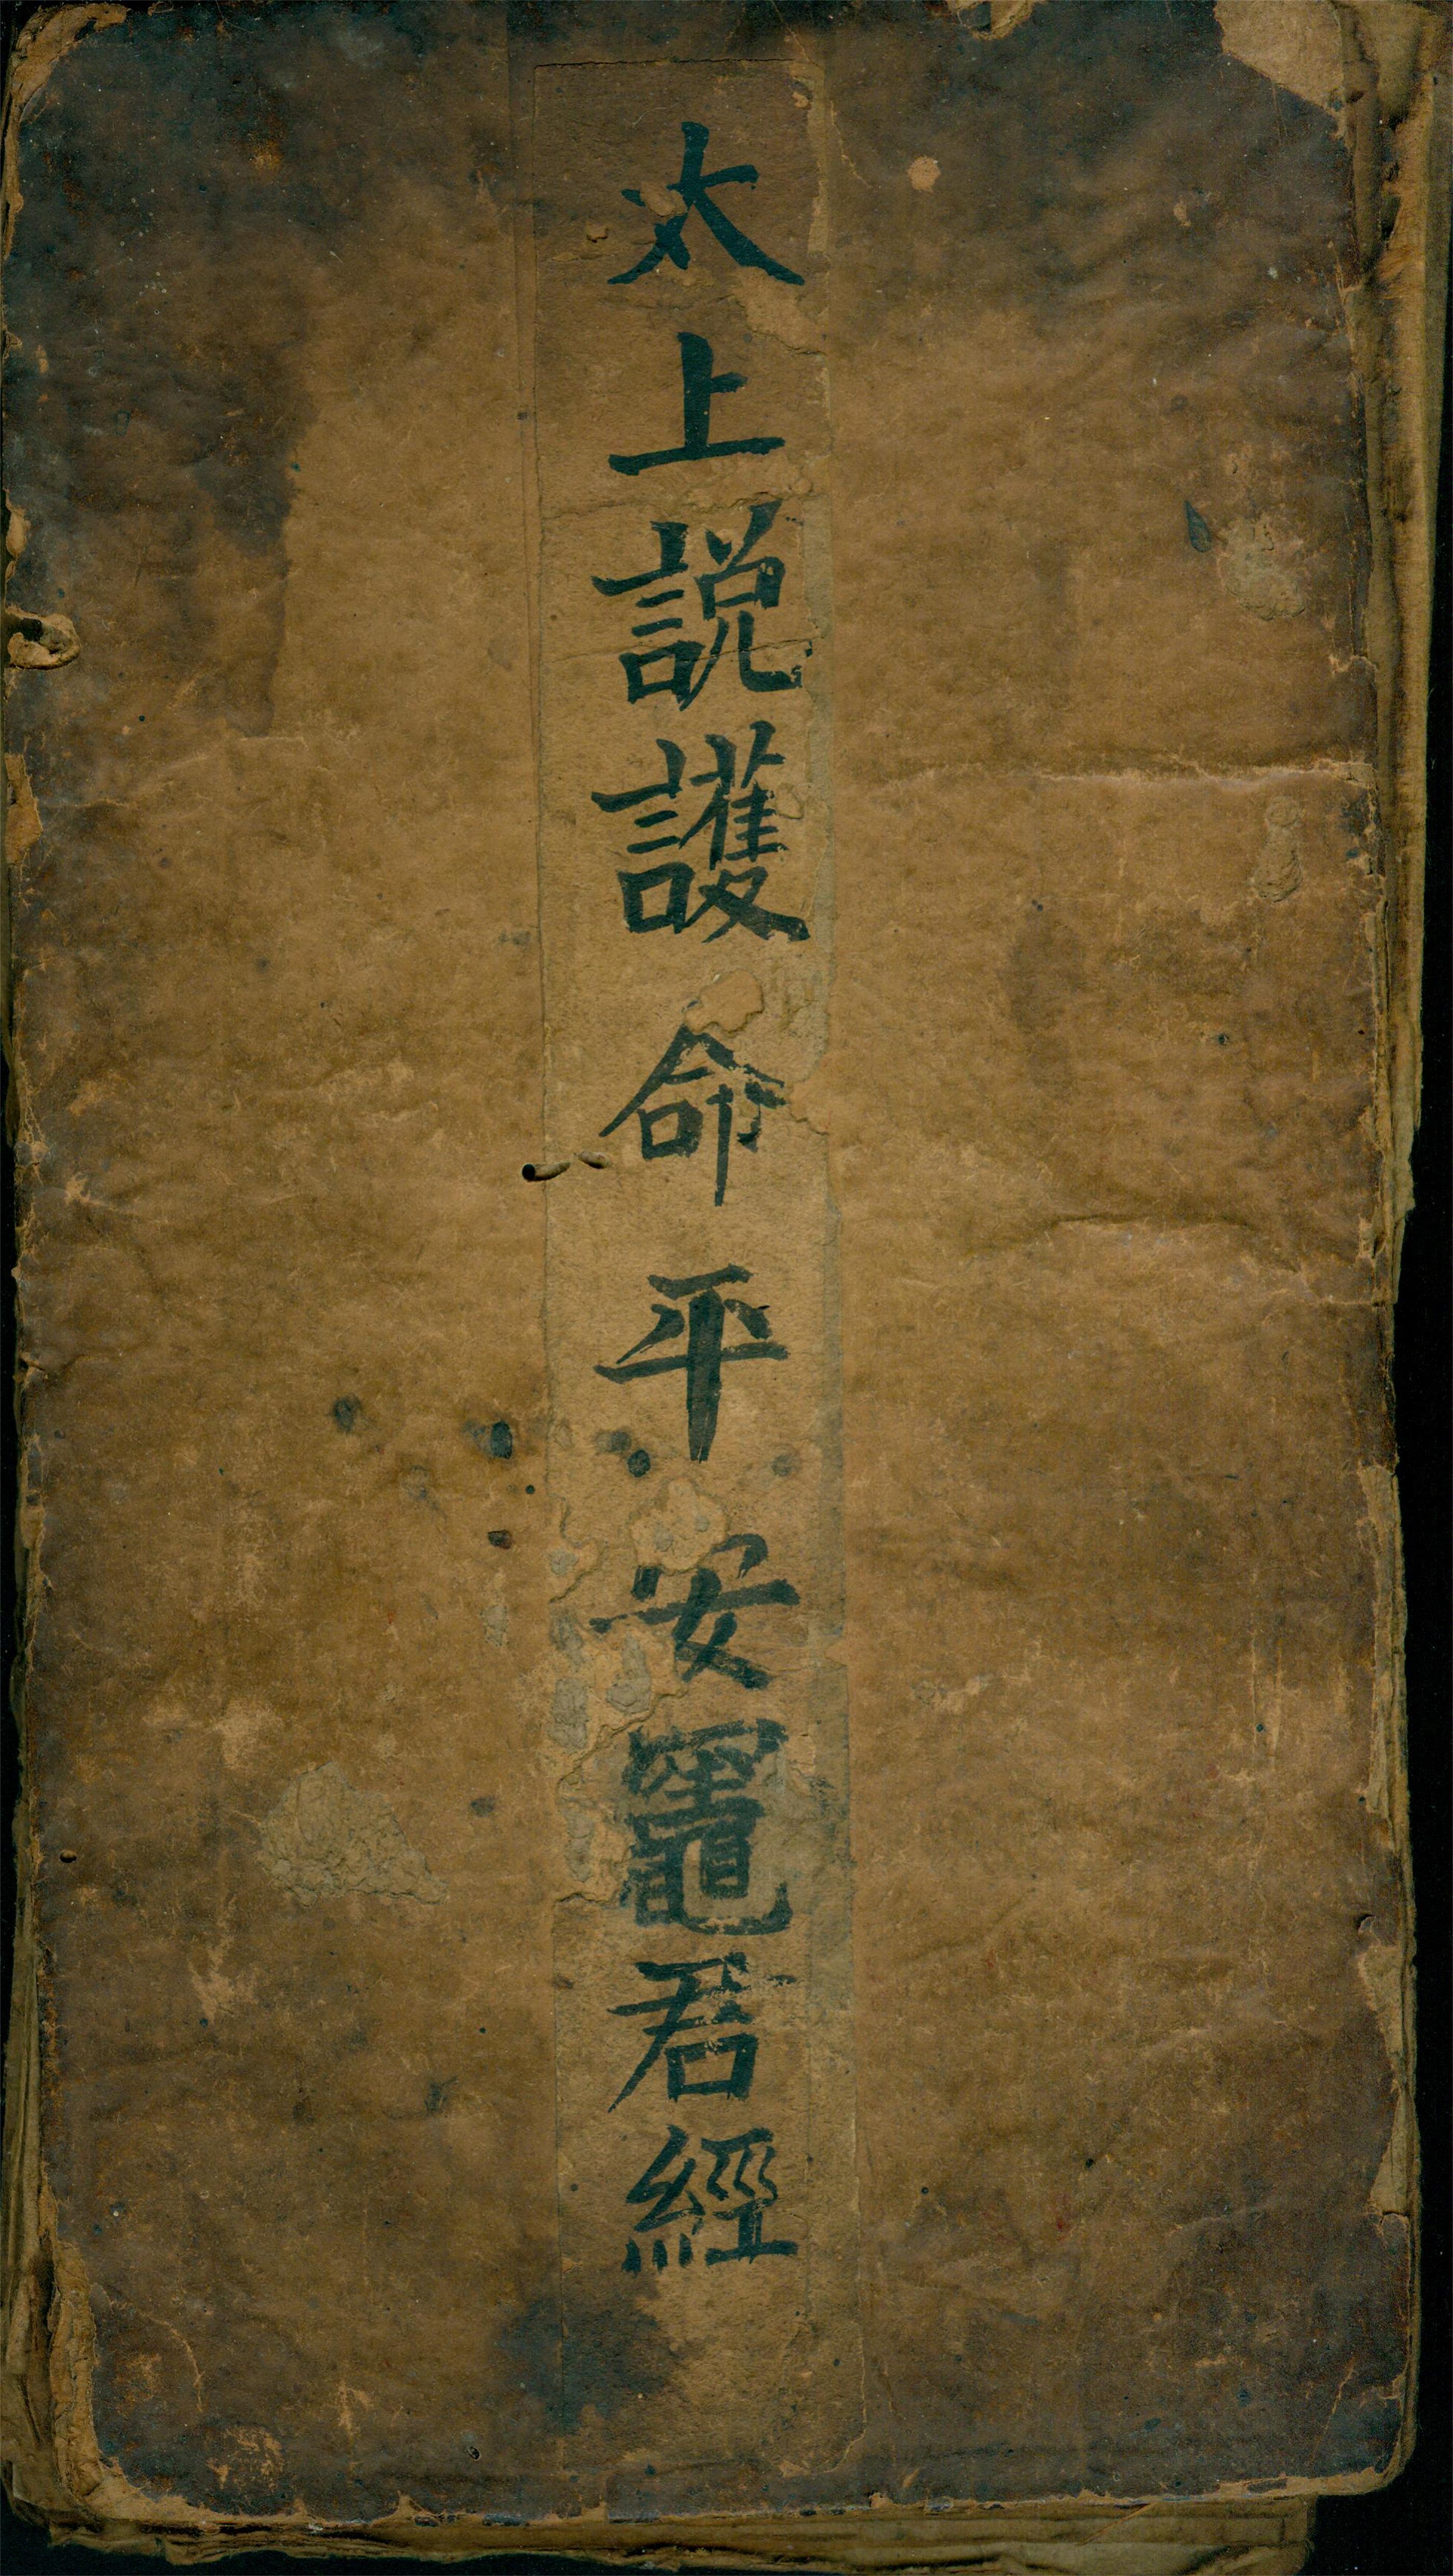 太上説護命平安竈君經